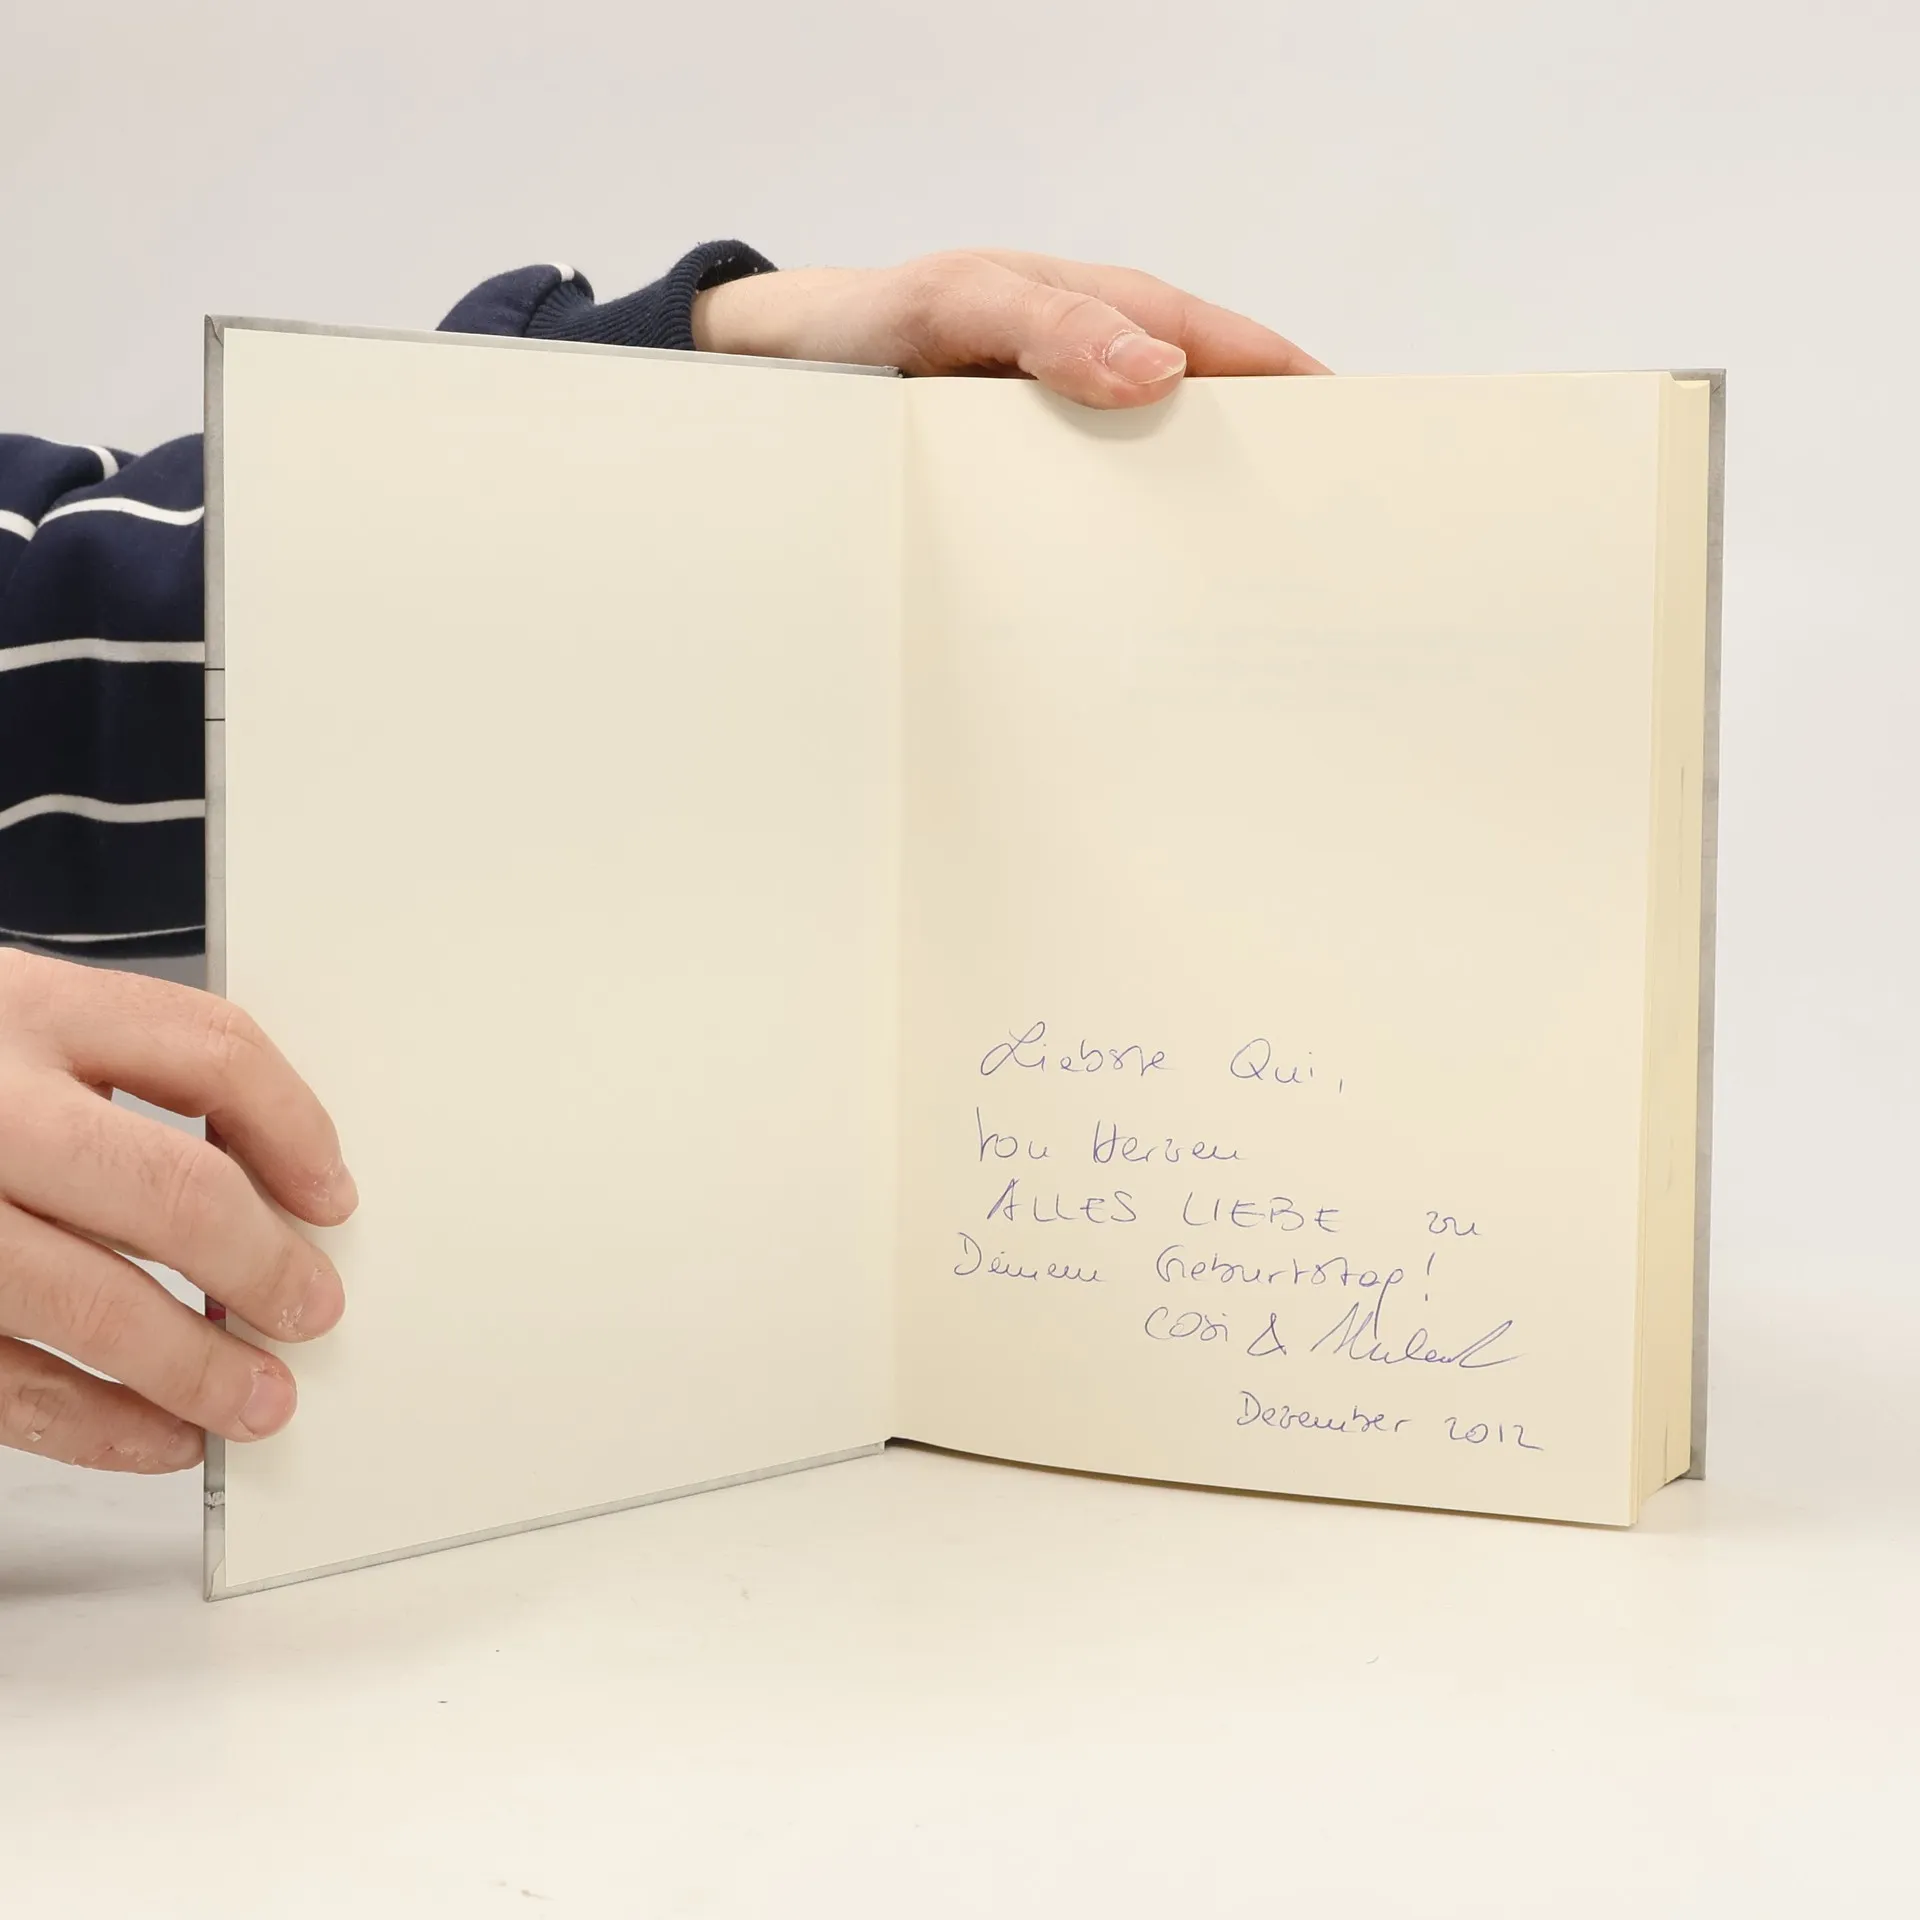 Liebste Qui,
von Herzen
ALLES LIEBE zu
Deinem Geburtstag!
Cosi &
Dezember 2012